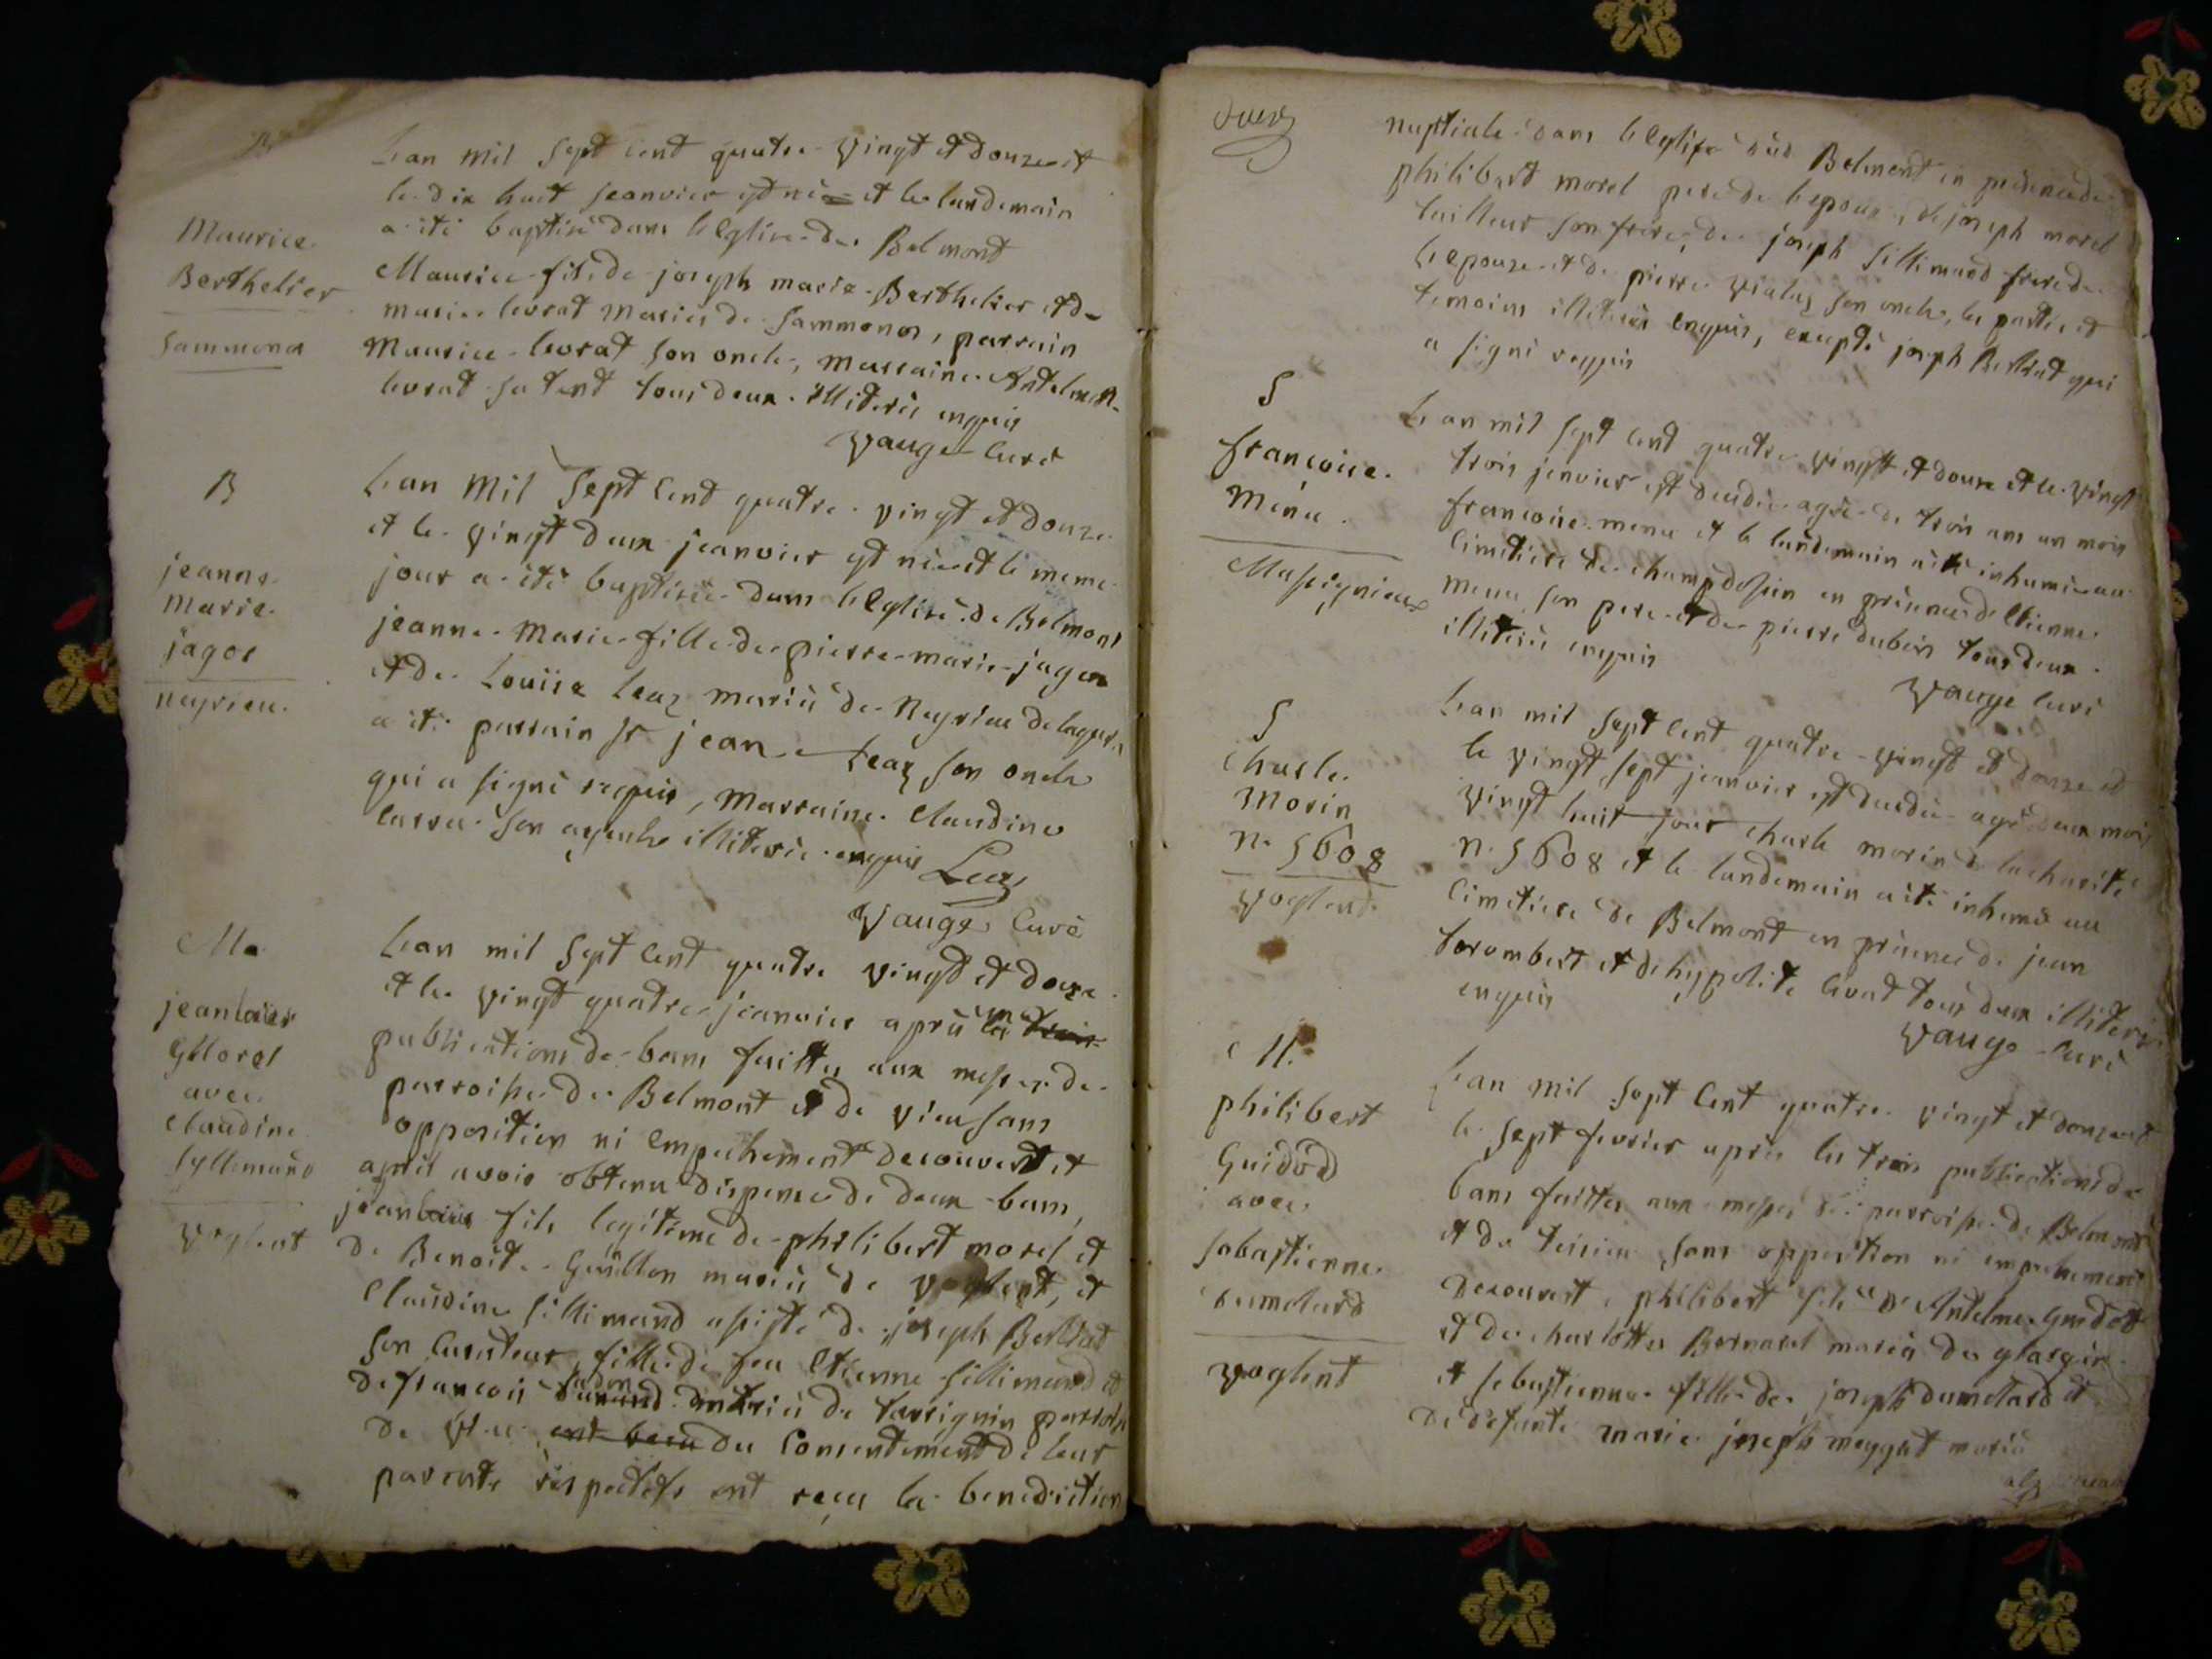 B
Maurice
Berthelier
Sammona
Lan mil sept cent quatre vingt et douze et
le dix huit jeanvier est né et le landemain
a eté baptisé dans leglise de Belmont
Maurice fils de joseph marie Berthelier et de
marie levrat mariés de Sammona, parrain
Maurice levrat son oncle, marraine Antelmea
levrat sa tent tous deux illiterés enquis
Vauge curé
B
jeanne
Marie
jagos
neyrieu
Lan mil Sept cent quatre vingt et douze
et le vingt deux jeanvier est née et le meme
jour a eté baptisée dans leglise de Belmont
jeanne Marie fille de pierre marie jagos
et de Louise Leaz mariés de Neyrieu
a eté parrain sr jean Leaz son oncle
qui a signé requis, Marraine Claudine
carre son ayeule illiterée enquis Leaz
Vauge Curé
Ma
jean louis
Morel
avec
claudine
syllimand
voglent
Lan mil sept cent quatre vingt et douze
et le vingt quatre jeanvier après les trois
publications de bans faittes aux messes de
parroisse de Belmont et de vieu sans
opposition ni empechement decouvert et
après avoir obtenu dispense de deux bans,
jean louis fils legitime de philibert morel et
de Benoite Guillon mariés de voglent, et
Claudine sillimand asisté de joseph Bertrat
son curateur, fille de feu Etienne sillimand et
de francois durand mariés de parroisse
de vieu ont recu du consentement de leur
parents respectifs ont reçu la benediction
nuptiale dans leglise dud Belmont en presence de
philibert morel pere de lepoux, de joseph morel
tailleur son frere, de joseph sillimand frere de
lepouze et de pierre vialaz son oncle, les parties et
temoins illiterés enquis, excepté joseph Bertrat qui
a signé requis
S
francoise
Menu
Massignieux
Lan mil sept cent quatre vingt et douze et le vingt
trois jenvier est decedée agée de trois ans un mois
francoise menu et le landemain a eté inhumée au
cimetiere de champdossin en presence d Etienne
menu son pere et de pierre dubois tous deux
illiterés enquis
Vauge curé
S
charle
Morin
n. 5608
voglend
Lan mil sept cent quatre vingt et douze et
le vingt sept jeanvier est decedé agé deux mois
vingt huit jour charle morin de la charité
n. 5608 et le landemain a eté inhumé au
cimetiere de Belmont en presence de jean
torombert et de hypolite livat tous deux illiterés
enquis
Vauge curé
M.
philibert
Guidod
avec
sebastienne
dumolard
voglent
Lan mil sept cent quatre vingt et douze et
le sept fevrier après les trois publications de
bans faittes aux messes de parroisse de Belmont
et de sans opposition ni empechement
decouvert, philibert fils d Antelme Guidod
et de charlotte Bernard mariés de
et sebastienne fille de joseph dumolard et
de defunte marie joseph meygnat mariés